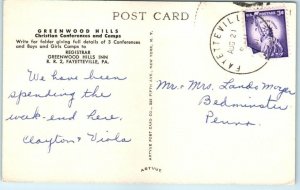 POST CARD
GREENWOOD HILLS
Christian Conferences and Camps
Write for folder giving full details of 3 Conferences
and Boys and Girls Camps to
REGISTRAR
GREENWOOD HILLS INN
R. R. 2, FAYETTEVILLE, PA.
FAYETTEVILLE
AUG 21
3¢
We have been
spending the
week-end here.
Clayton & Viola
Mr. & Mrs. Landis Moyer
Bedminster
Penna.
ARTVUE POST CARD CO., 225 FIFTH AVE., NEW YORK, N. Y.
ARTVUE